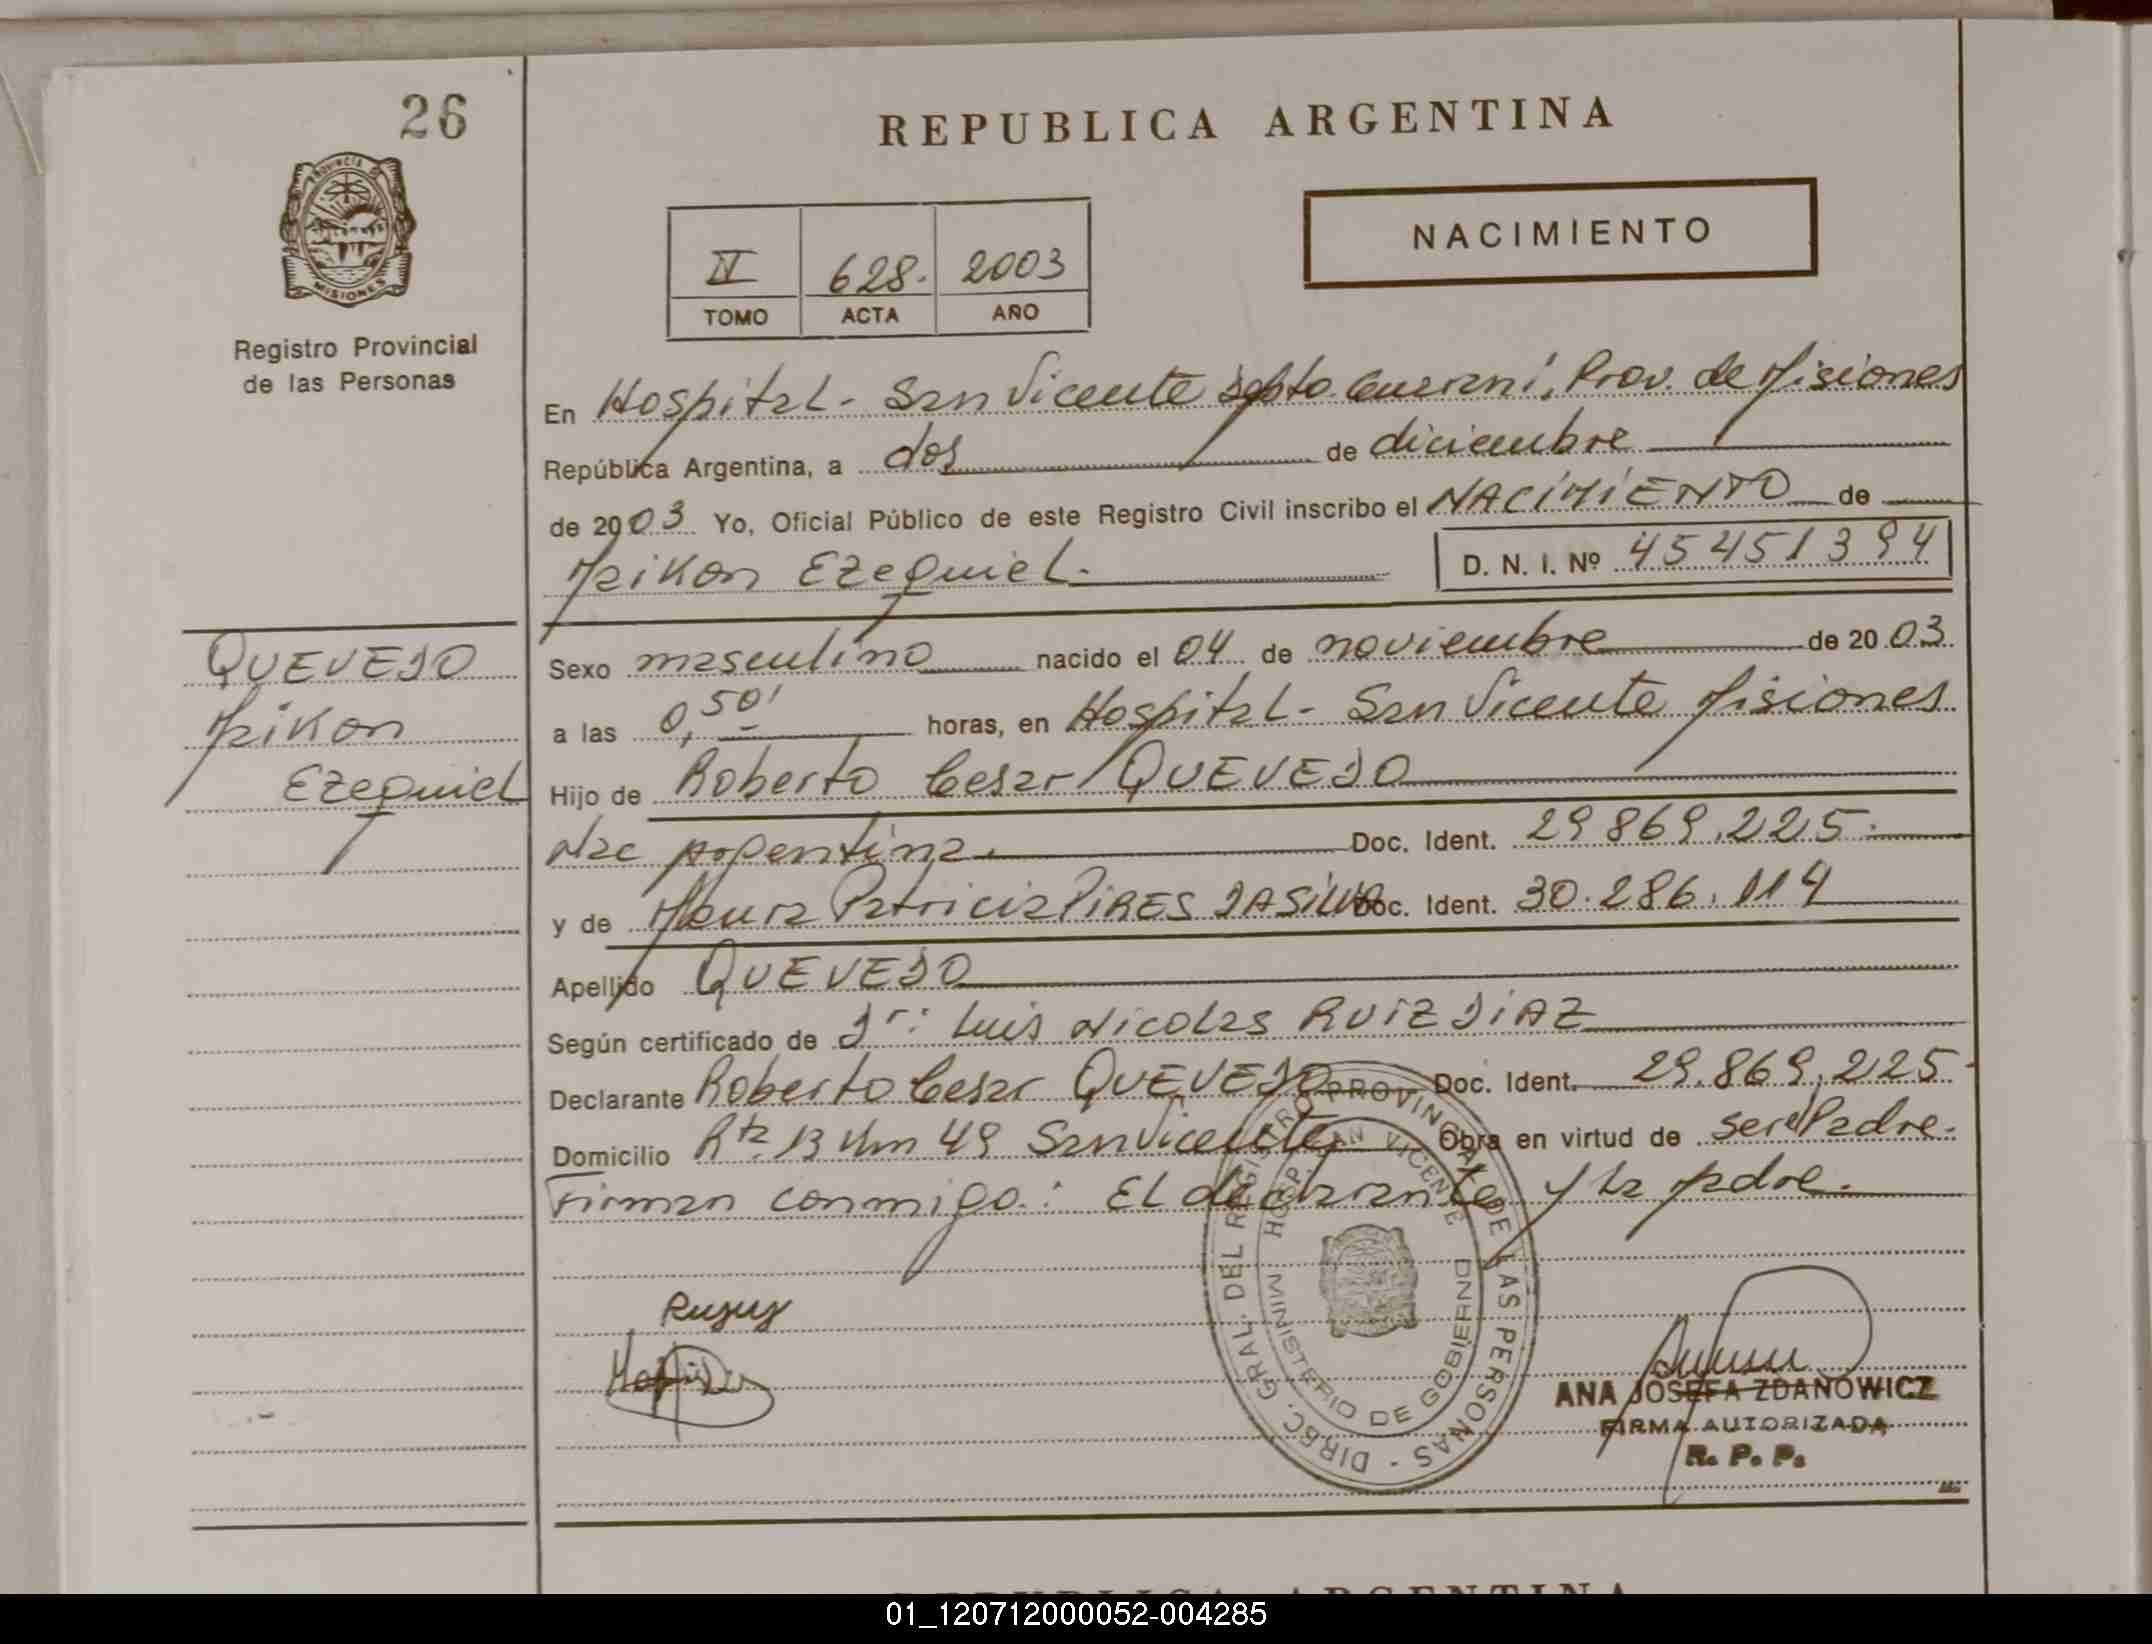 26
REPUBLICA ARGENTINA
NACIMIENTO
PROVINCIA DE
MISIONES
Registro Provincial
de las Personas
IV 628. 2003
TOMO ACTA AÑO
En Hospital - San Vicente Dpto. Guaraní, Prov. de Misiones
República Argentina, a dos de diciembre
de 2003 Yo, Oficial Público de este Registro Civil inscribo el NACIMIENTO de
Maikon Ezequiel.
D. N. I. Nº 45451394
QUEVEDO
Maikon
Ezequiel
Sexo masculino nacido el 04 de noviembre de 2003.
a las 0,50' horas, en Hospital - San Vicente Misiones
Hijo de Roberto Cesar QUEVEDO
Nac argentina. Doc. Ident. 29869.225.
y de Patricia PIRES DA SILVA Doc. Ident. 30.286.114
Apellido QUEVEDO
Según certificado de Dr: Luis Nicolas RUIZ DIAZ
Declarante Roberto Cesar QUEVEDO Doc. Ident. 29.869.225.
Domicilio Rta. 13 Km 49 San Vicente Obra en virtud de ser el Padre.
Firman conmigo: El declarante y la madre.
DIREC. GRAL. DEL REGISTRO PROVINCIAL DE LAS PERSONAS -
HOSP. SAN VICENTE
MINISTERIO DE GOBIERNO
ANA JOSEFA ZDANOWICZ
FIRMA AUTORIZADA
R. P. P.
REPUBLICA ARGENTINA
01_120712000052-004285